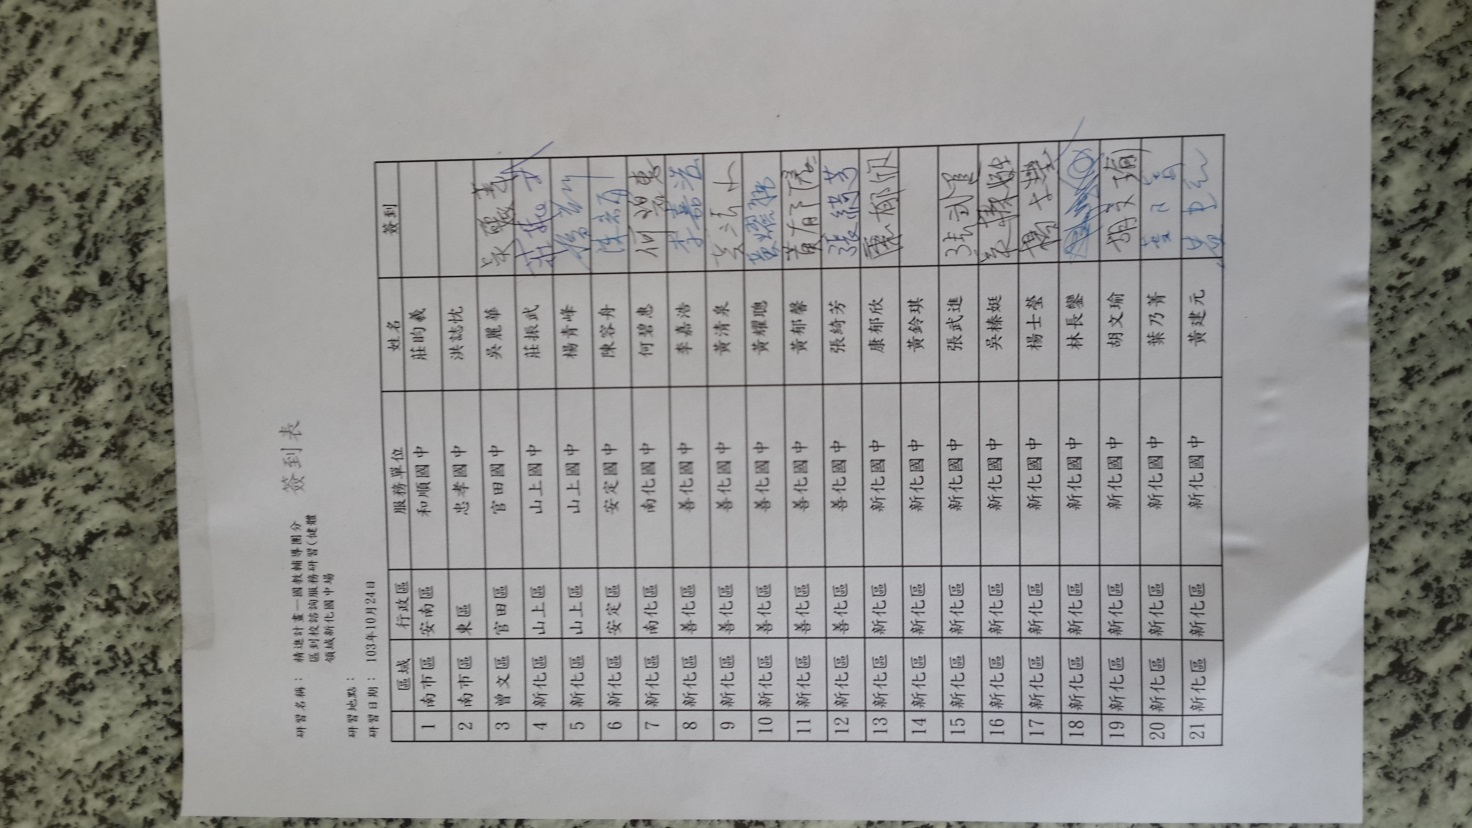 簽到表
研習名稱： 精進計畫—國教輔導團分
區到校諮詢服務研習(健體
領域新化國中場
研習地點：
研習日期： 103年10月24日
區域 行政區 服務單位 姓名 簽到
1 南市區 安南區 和順國中 莊昀義
2 南市區 東區 忠孝國中 洪誌忱
3 曾文區 官田區 官田國中 吳麗華 吳麗華
4 新化區 山上區 山上國中 莊振武 莊振武
5 新化區 山上區 山上國中 楊青峰
6 新化區 安定區 安定國中 陳容舟 陳容舟
7 新化區 南化區 南化國中 何碧惠 何碧惠
8 新化區 善化區 善化國中 李嘉浩 李嘉浩
9 新化區 善化區 善化國中 黃清泉
10 新化區 善化區 善化國中 黃耀聰 黃耀聰
11 新化區 善化區 善化國中 黃郁馨 黃郁馨
12 新化區 善化區 善化國中 張綺芳 張綺芳
13 新化區 新化區 新化國中 康郁欣 康郁欣
14 新化區 新化區 新化國中 黃鈴琪
15 新化區 新化區 新化國中 張武進 張武進
16 新化區 新化區 新化國中 吳榛娗 吳榛娗
17 新化區 新化區 新化國中 楊士瑩 楊士瑩
18 新化區 新化區 新化國中 林長鑾
19 新化區 新化區 新化國中 胡文瑜 胡文瑜
20 新化區 新化區 新化國中 葉乃菁 葉乃菁
21 新化區 新化區 新化國中 黃建元 黃建元